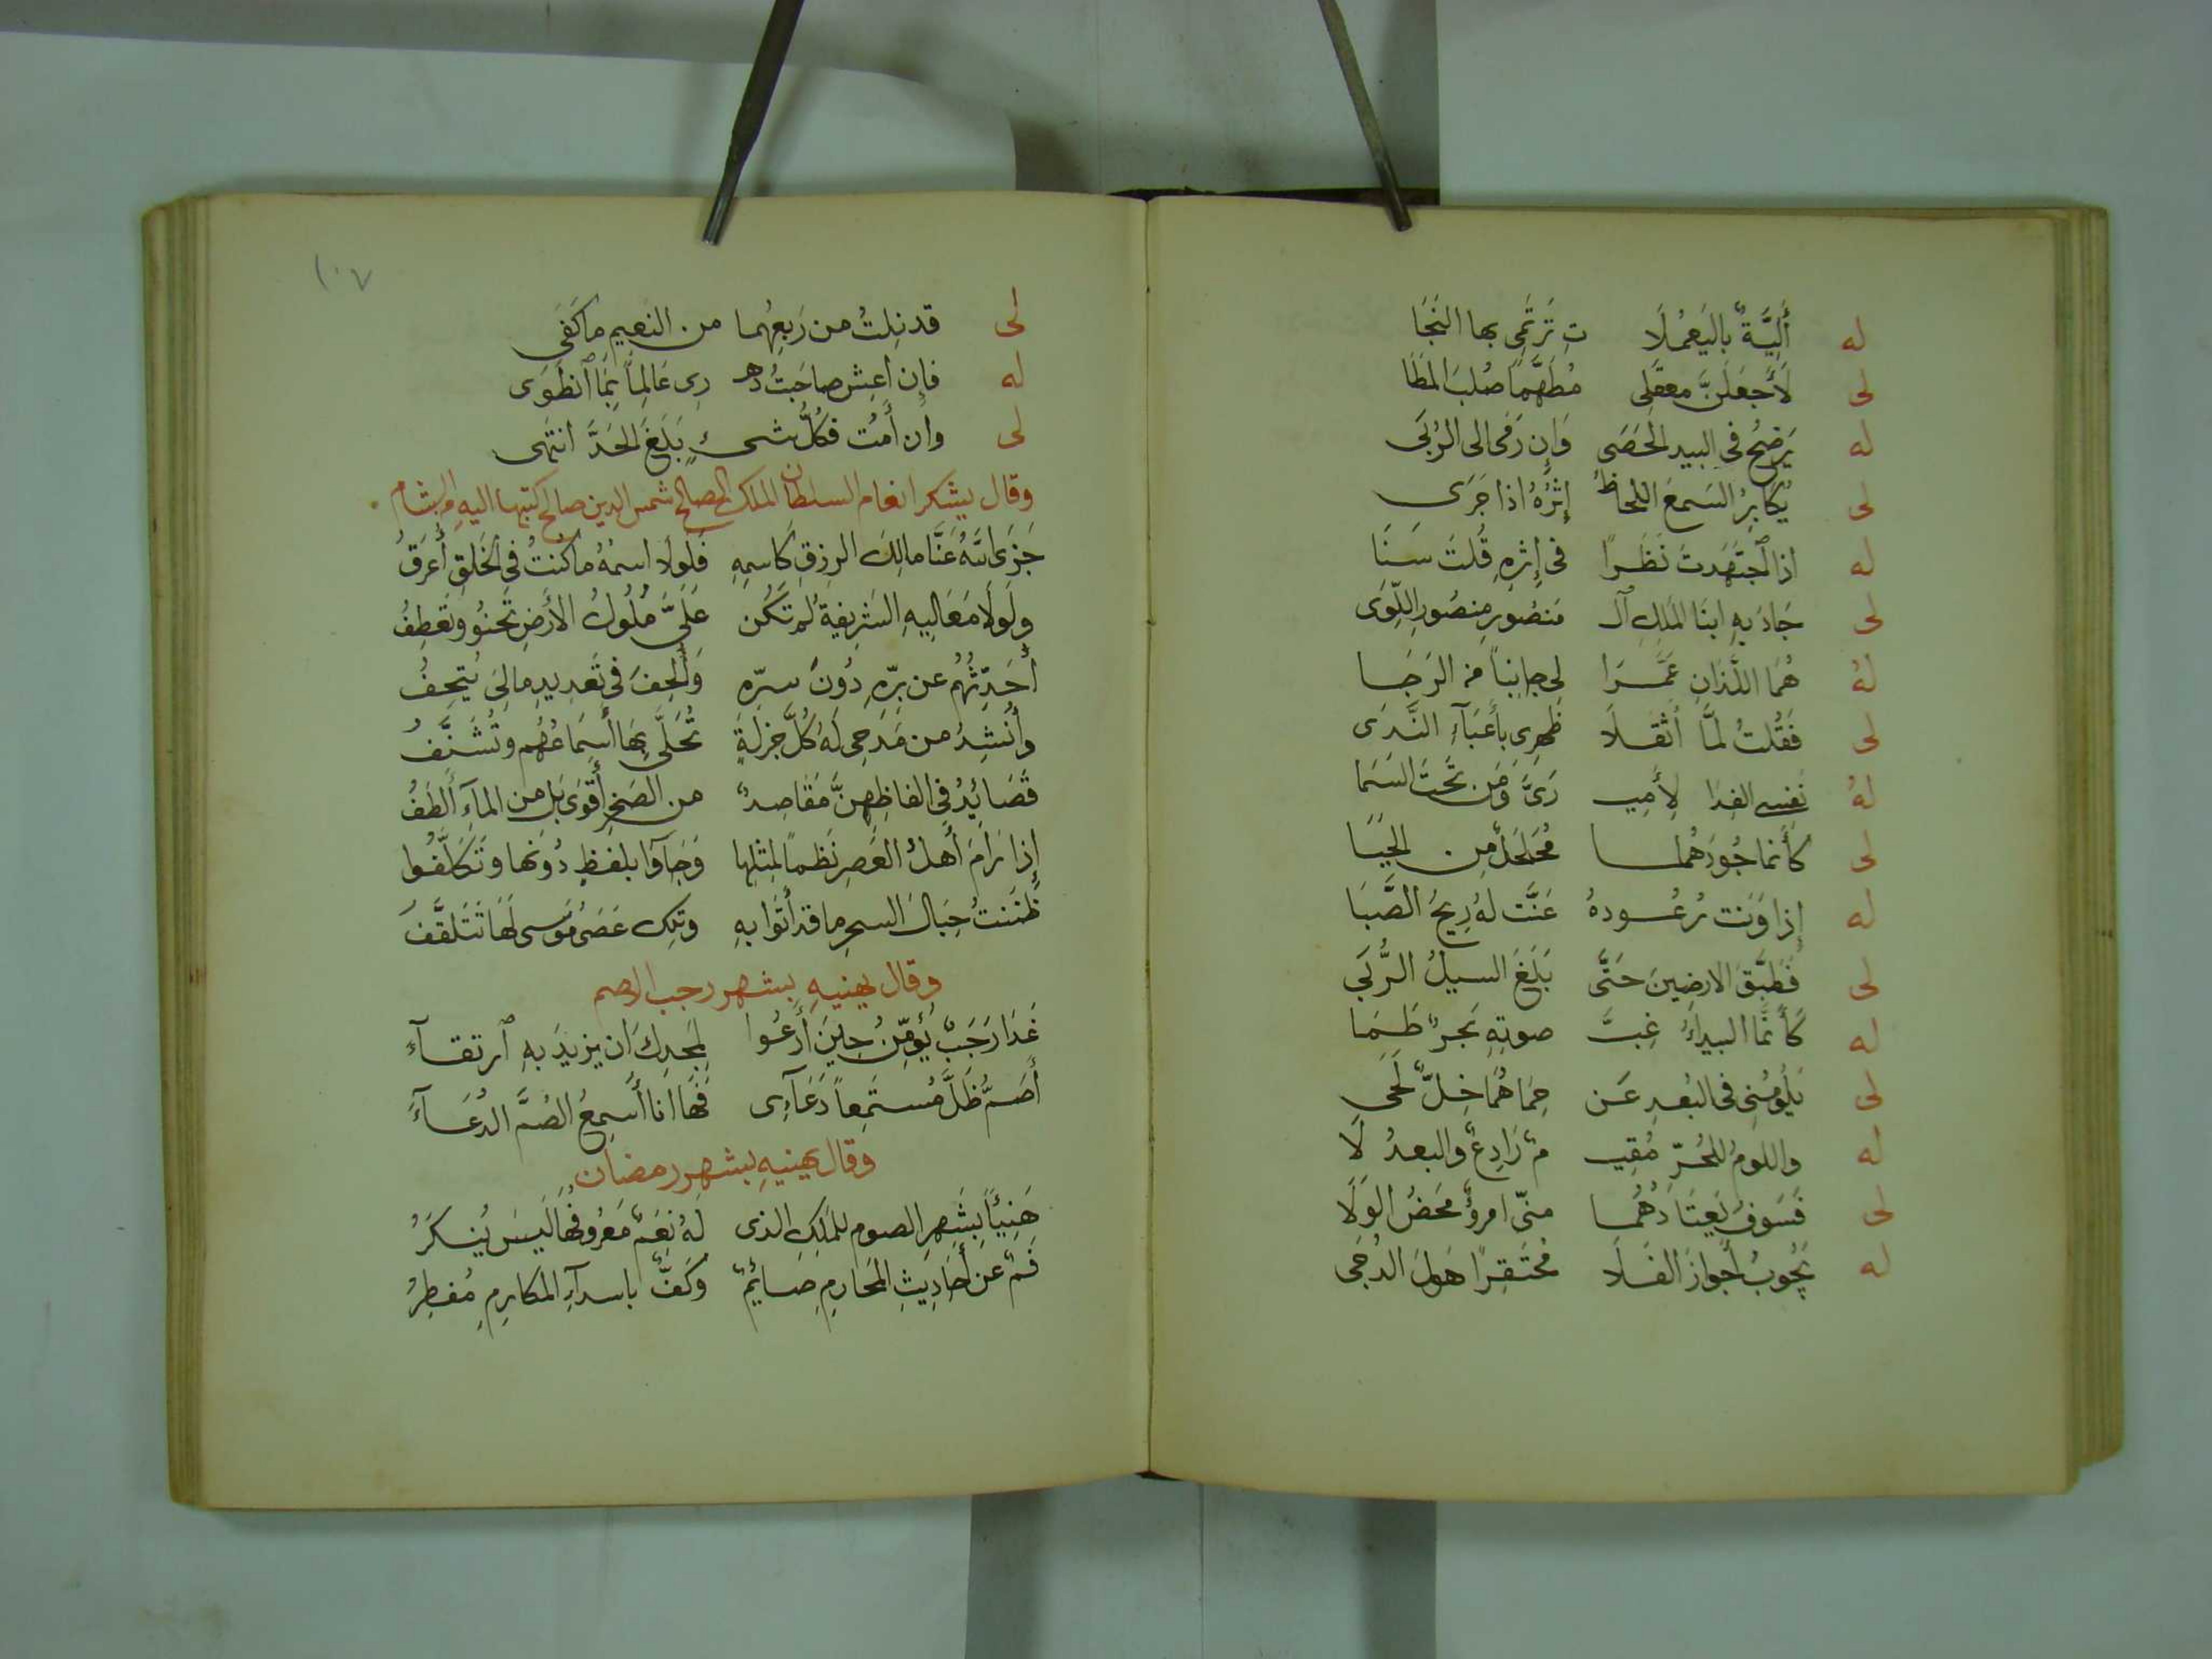 له أَلِيَّةً بِاليَعمُلَا تِ تَرتَمِى بها النَجَا
لى لَأَجعَلَنَّ معقَلِى مُطَهَّمًا صُلبَ المَطَا
له يَرضَحُ فى البيد الحَصَى وَإِن رَقَى الى الرُبَى
لى يُكَابِرُ السَمعَ اللِحَاظُ إِثْرَهُ اذا جَرَى
له اذا اجتَهَدتَ نَظَرًا فى إِثرِهِ قُلتَ سَنَا
لى جَادَ بِهِ ابنَا المَلِكِ آل مَنصُورِ مَنصُورِ اللِّوَى
لهُ هُمَا اللَّذَانِ عَمَّرَا لى جانبًا من الرَجَا
لى فَقُلتُ لمَّا أَثقَلَا ظَهرِى بأَعبَآءِ النَّدَى
لهُ نَفسى الفِدَا لِأَمِيـ ـرَىَّ وَمَن تَحتَ السَمَا
لى كأَنما جُودُهُما مُجَلجَلٌ مِن الحَيَا
له إِذا وَنَت رُعُودهُ عَنَّت لهُ رِيحُ الصَّبَا
لى فَطَبَّقَ الارضِينَ حَتَّى بَلَغَ السيلُ الرُّبَى
له كَأَنَّمَا البيداءُ غِبَّ صوبِهِ بَحرٌ طَمَا
لى يَلُومُنِى فى البُعدِ عَن حِمَاهُمَا خِلٌّ لَحَى
له واللومُ للحُرِّ مُقِيـ مٌ رَادِعٌ والبعدُ لَا
لى فَسَوفَ يَعتَادُهُمَا منّى امرؤٌ مَحضُ الوَلَا
له يَجُوبُ أَجوازَ الفَلَا مُحتَقِرًا هَولَ الدُجَى
١٠٧
لى قد نِلتُ من رَبعِهُما من النعِيمِ ما كَفَى
له فإِن أَعِش صاحَبتُ دهـ رِى عَالِمًا بِمَا انطَوَى
لى وان أَمُت فكُلُّ شىءٍ بَلَغَ الحَدَّ انتَهى
وقال يشكر انعام السلطان الملك الصالح شمس الدين صالح كتبها اليهِ من الشام
جَزَى اللهُ عَنَّا مالِكَ الرِزقِ كَاسمِهِ فَلَولَا اسمُهُ ما كنتُ فى الخَلقِ أُعرَفُ
ولَولَا مَعَالِيهِ الشَرِيفةُ لم تَكُن عَلَىَّ مُلُوكُ الأَرضِ تَحنُو وتَعطِفُ
أُحَدِّثُهُم عن بِرِّهِ دُونَ سِرِّهِ وَأُلحِفُ فى تَعدِيدِ مالِىَ يُتحِفُ
وأُنشِدُ من مَدحِى لَهُ كُلَّ جَزلَةٍ تُحَلَّى بِهَا أَسمَاعُهُم وتُشَنَّفُ
قَصَائِدُ فى الفاظِهِنَّ مَقَاصِدٌ من الصَخرِ أَقوَى بَل من المآءِ أَلطَفُ
إِذا رَامَ أَهلُ العَصرِ نَظمًا لمِثلِها وَجآوا بلفظٍ دُونَها وتَكَلَّفُوا
ظَنَنتُ حِبَالَ السحرِ ما قد أَتَوا بهِ وتِلكَ عَصَى مُوسى لَهَا تَتَلَقَّفُ
وقال يهنيهِ بشهر رجب الاصم
غَدَا رَجَبٌ يُؤَمِّنُ حِينَ أَدعُوا لِمَجدِكَ ان يزيدَ بهِ ارتقآءَ
أَصَمُّ ظَلَّ مُستَمِعًا دُعَآءِى فَهَا انا أُسمِعُ الصُمَّ الدُعَآءَ
وقال يهنيهِ بشهر رمضان
هَنِيئًا بِشَهرِ الصومِ للمَلِكِ الذى لَهُ نِعَمٌ مَعرُوفُهَا لَيسَ يُنكَرُ
فَمٌ عَن أَحَادِيثِ المَحَارِمِ صائِمٌ وكَفٌّ باسدآءِ المكارمِ مُفطِرُ